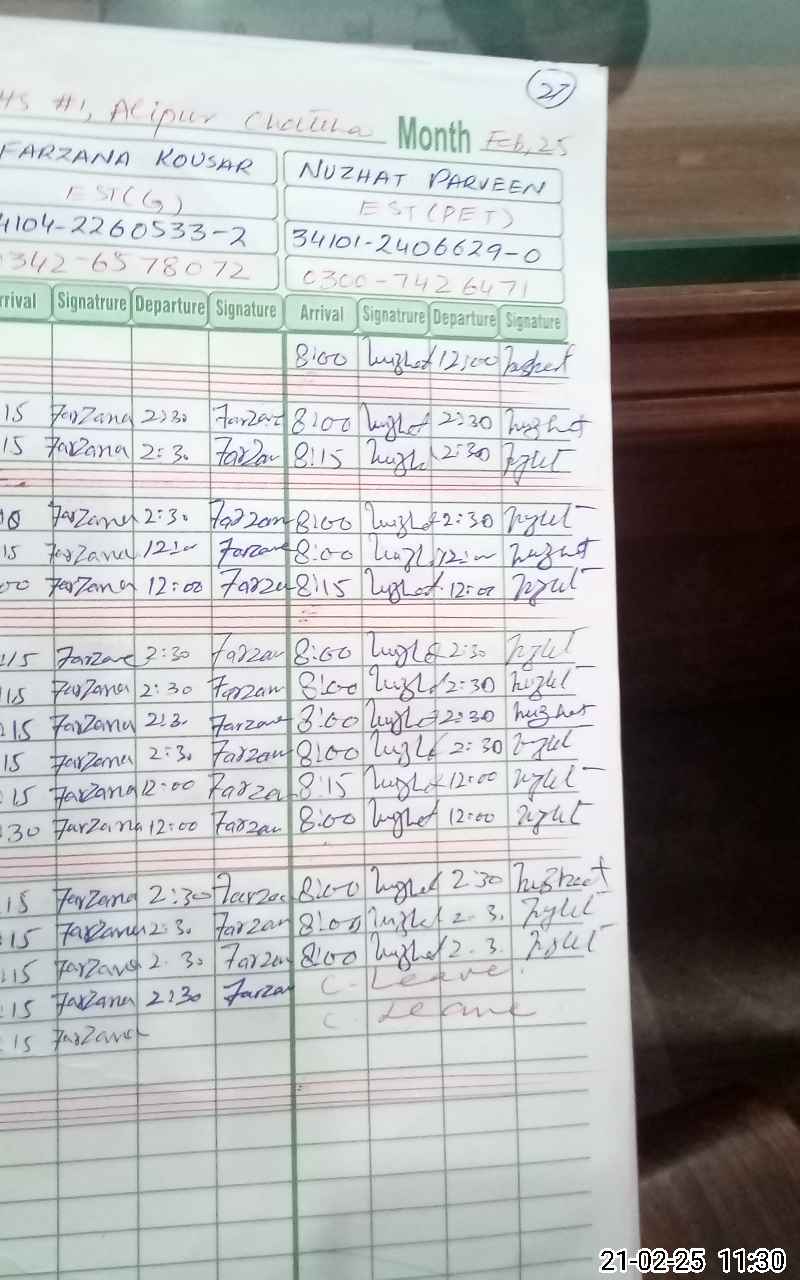 27
HS #1, Alipur Chattha Month Feb, 25
FARZANA KOUSAR NUZHAT PARVEEN
EST(G) EST(PET)
4104-2260533-2 34101-2406629-0
0342-6578072 0300-7426471
rrival Signatrure Departure Signature Arrival Signatrure Departure Signature
8:00 Nuzhat 12:00 Nuzhat
15 Farzana 2:30 Farzana 8:00 Nuzhat 2:30 Nuzhat
15 Farzana 2:30 Farzana 8:15 Nuzhat 2:30 Nuzhat
Farzana 2:30 Farzana 8:00 Nuzhat 2:30 Nuzhat
15 Farzana 12:00 Farzana 8:00 Nuzhat 12:00 Nuzhat
00 Farzana 12:00 Farzana 8:15 Nuzhat 12:00 Nuzhat
:15 Farzana 2:30 Farzana 8:00 Nuzhat 2:30 Nuzhat
:15 Farzana 2:30 Farzana 8:00 Nuzhat 2:30 Nuzhat
:15 Farzana 2:30 Farzana 8:00 Nuzhat 2:30 Nuzhat
15 Farzana 2:30 Farzana 8:00 Nuzhat 2:30 Nuzhat
:15 Farzana 12:00 Farzana 8:15 Nuzhat 12:00 Nuzhat
:30 Farzana 12:00 Farzana 8:00 Nuzhat 12:00 Nuzhat
:15 Farzana 2:30 Farzana 8:00 Nuzhat 2:30 Nuzhat
:15 Farzana 2:30 Farzana 8:00 Nuzhat 2:30 Nuzhat
:15 Farzana 2:30 Farzana 8:00 Nuzhat 2:30 Nuzhat
:15 Farzana 2:30 Farzana C. Leave
:15 Farzana C. Leave
21-02-25 11:30